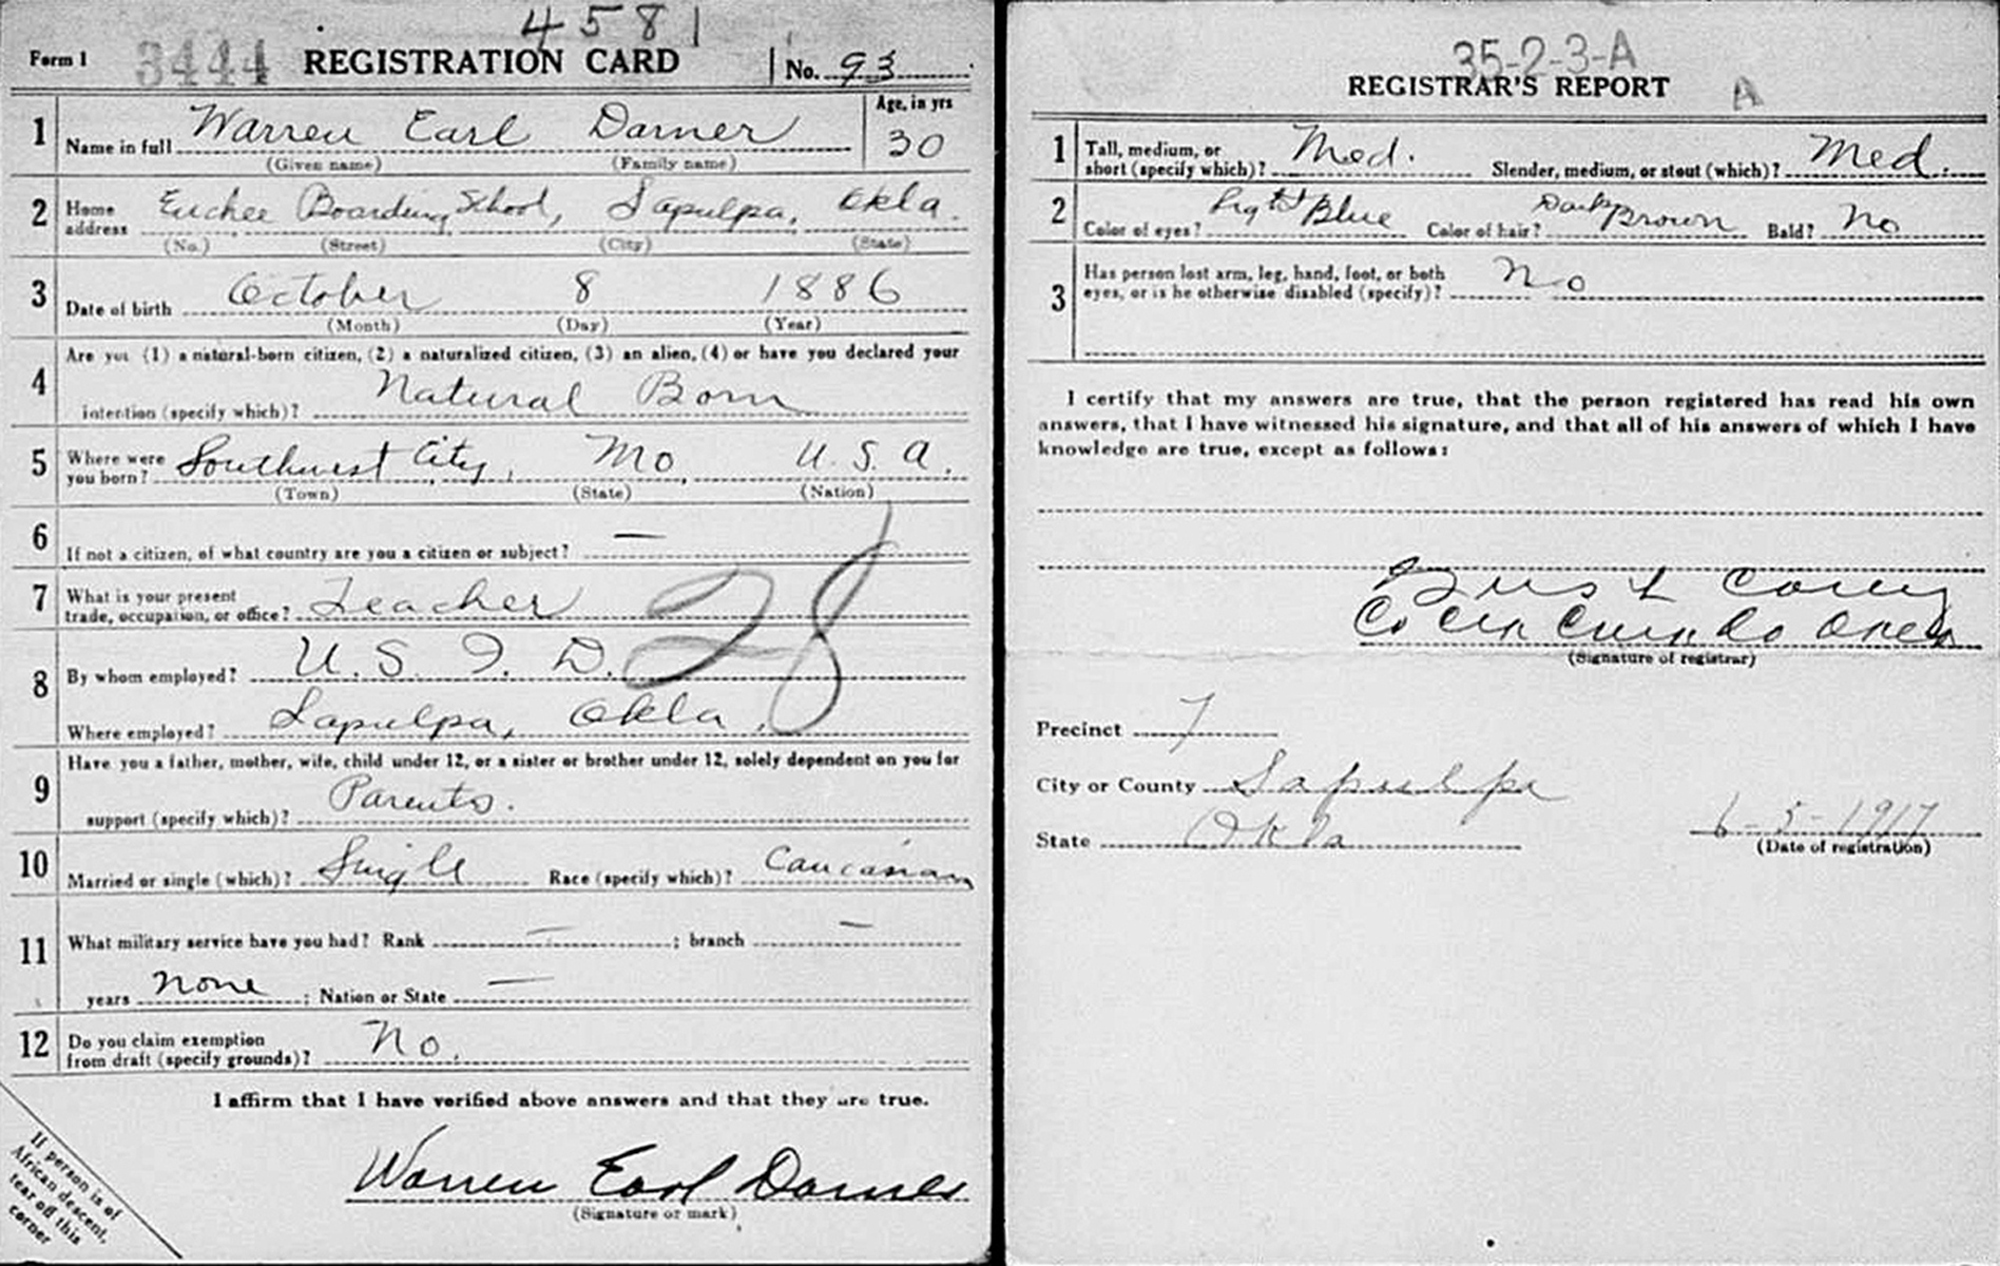 4581
Form 1 3444 REGISTRATION CARD No. 93
1 Name in full Warren Earl Darner Age, in yrs 30
(Given name) (Family name)
2 Home address Euchee Boarding School, Sapulpa, Okla.
(No.) (Street) (City) (State)
3 Date of birth October 8 1886
(Month) (Day) (Year)
4 Are you (1) a natural-born citizen, (2) a naturalized citizen, (3) an alien, (4) or have you declared your
intention (specify which)? Natural Born
5 Where were you born? Southwest City, Mo, U. S. A.
(Town) (State) (Nation)
6 If not a citizen, of what country are you a citizen or subject? —
7 What is your present trade, occupation, or office? Teacher
28
8 By whom employed? U. S. I. D.
Where employed? Sapulpa, Okla.
9 Have you a father, mother, wife, child under 12, or a sister or brother under 12, solely dependent on you for
support (specify which)? Parents.
10 Married or single (which)? Single Race (specify which)? Caucasian
11 What military service have you had? Rank — ; branch —
years None ; Nation or State —
12 Do you claim exemption from draft (specify grounds)? No.
I affirm that I have verified above answers and that they are true.
Warren Earl Darner
(Signature or mark)
If person is of
African descent,
tear off this
corner
35-2-3-A
REGISTRAR'S REPORT A
1 Tall, medium, or short (specify which)? Med. Slender, medium, or stout (which)? Med.
2 Color of eyes? Light Blue Color of hair? Dark Brown Bald? No
3 Has person lost arm, leg, hand, foot, or both
eyes, or is he otherwise disabled (specify)? No
I certify that my answers are true, that the person registered has read his own
answers, that I have witnessed his signature, and that all of his answers of which I have
knowledge are true, except as follows:
(Signature of registrar)
Precinct 7
City or County Sapulpa
State Okla 6-5-1917
(Date of registration)